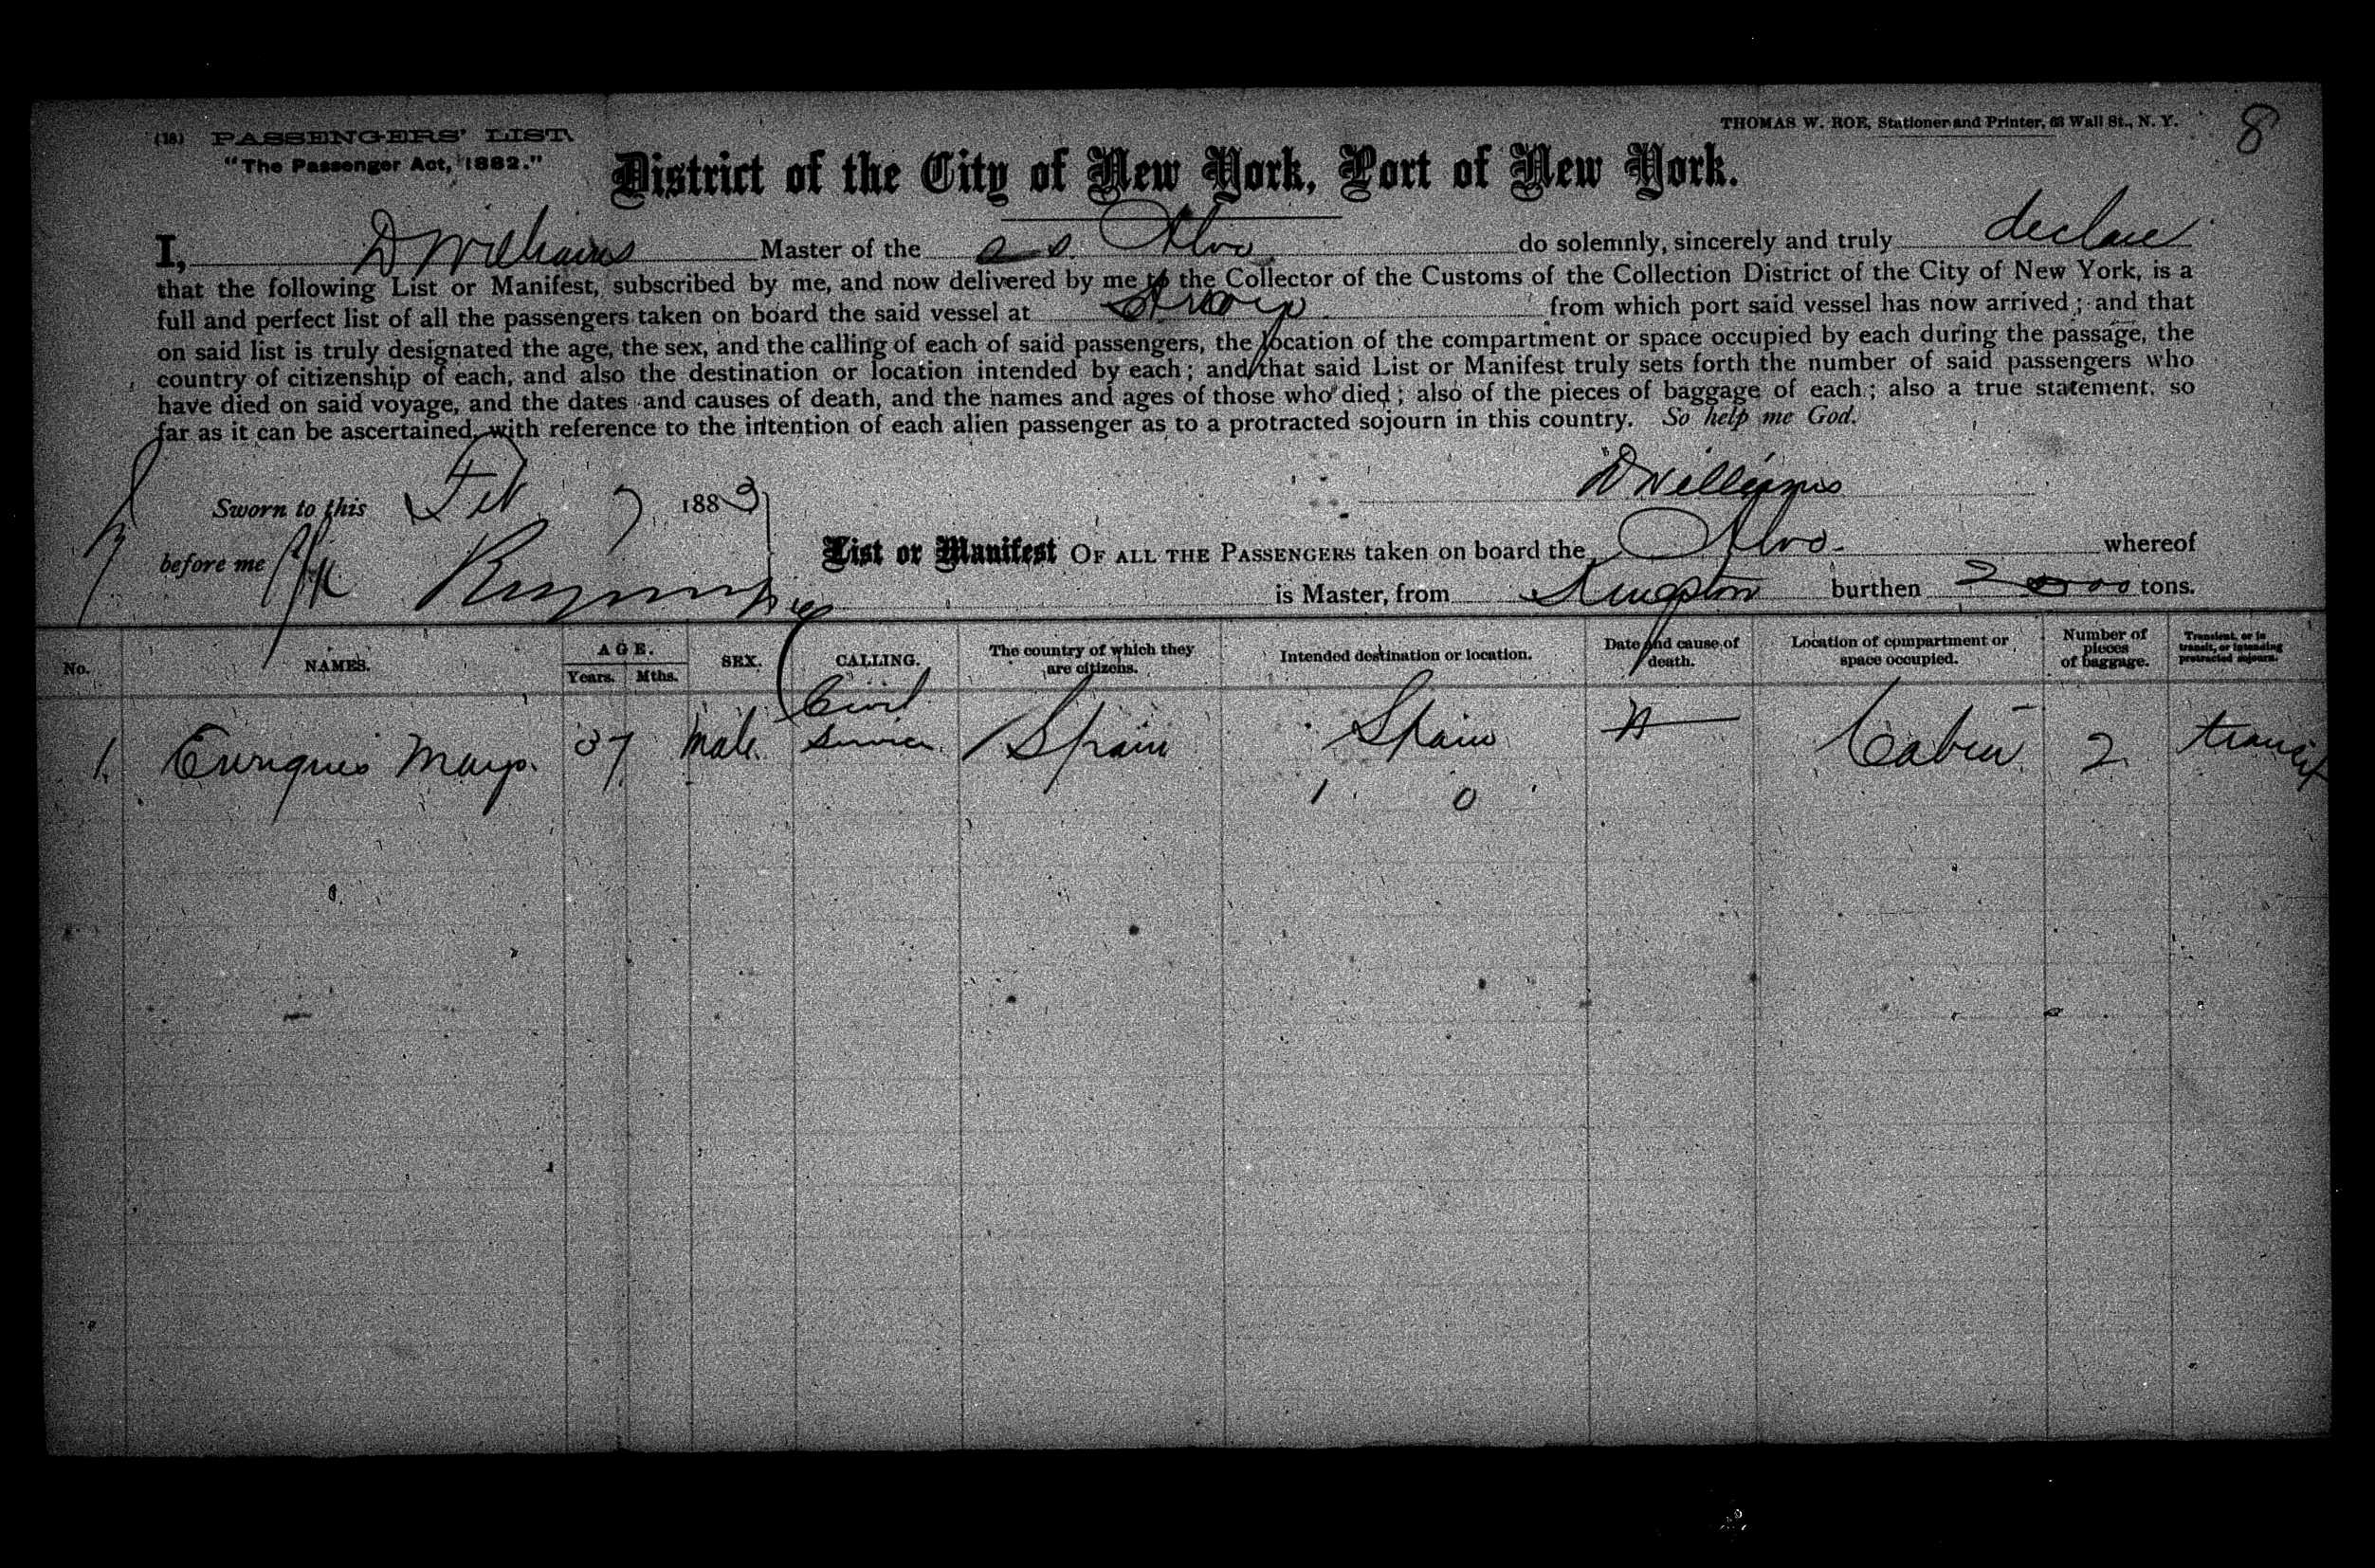 (18) PASSENGERS' LIST.
"The Passenger Act, 1882."
THOMAS W. ROE, Stationer and Printer, 63 Wall St., N. Y.
8
District of the City of New York, Port of New York.
I, D Williams Master of the s s. Alvo do solemnly, sincerely and truly declare
that the following List or Manifest, subscribed by me, and now delivered by me to the Collector of the Customs of the Collection District of the City of New York, is a
full and perfect list of all the passengers taken on board the said vessel at from which port said vessel has now arrived; and that
on said list is truly designated the age, the sex, and the calling of each of said passengers, the location of the compartment or space occupied by each during the passage, the
country of citizenship of each, and also the destination or location intended by each; and that said List or Manifest truly sets forth the number of said passengers who
have died on said voyage, and the dates and causes of death, and the names and ages of those who died; also of the pieces of baggage of each; also a true statement, so
far as it can be ascertained, with reference to the intention of each alien passenger as to a protracted sojourn in this country. So help me God.
Sworn to this Feb 7 1883
D Williams
before me
List or Manifest OF ALL THE PASSENGERS taken on board the Alvo. whereof
is Master, from Kingston burthen tons.
No. NAMES. AGE. Years. Mths. SEX. CALLING. The country of which they are citizens. Intended destination or location. Date and cause of death. Location of compartment or space occupied. Number of pieces of baggage. Transient, or in transit, or intending protracted sojourn.
1. Mayo. 37 Male Civil Service Spain Spain Cabin 2 transit
1 0